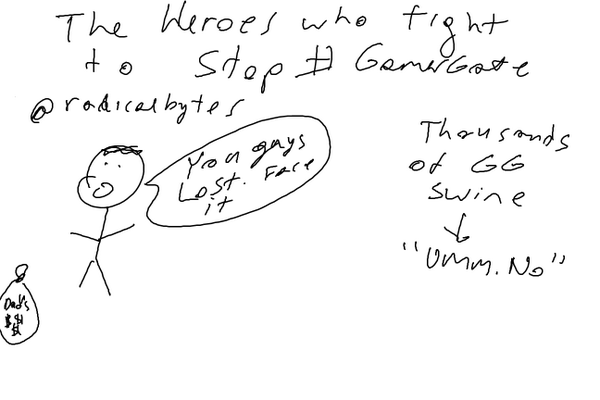 The Heroes who fight
to Stop #GamerGate
@radicalbytes
You guys
Lost. Face
it
Thousands
of GG
swine
"Umm. No"
Dad's
$$
$